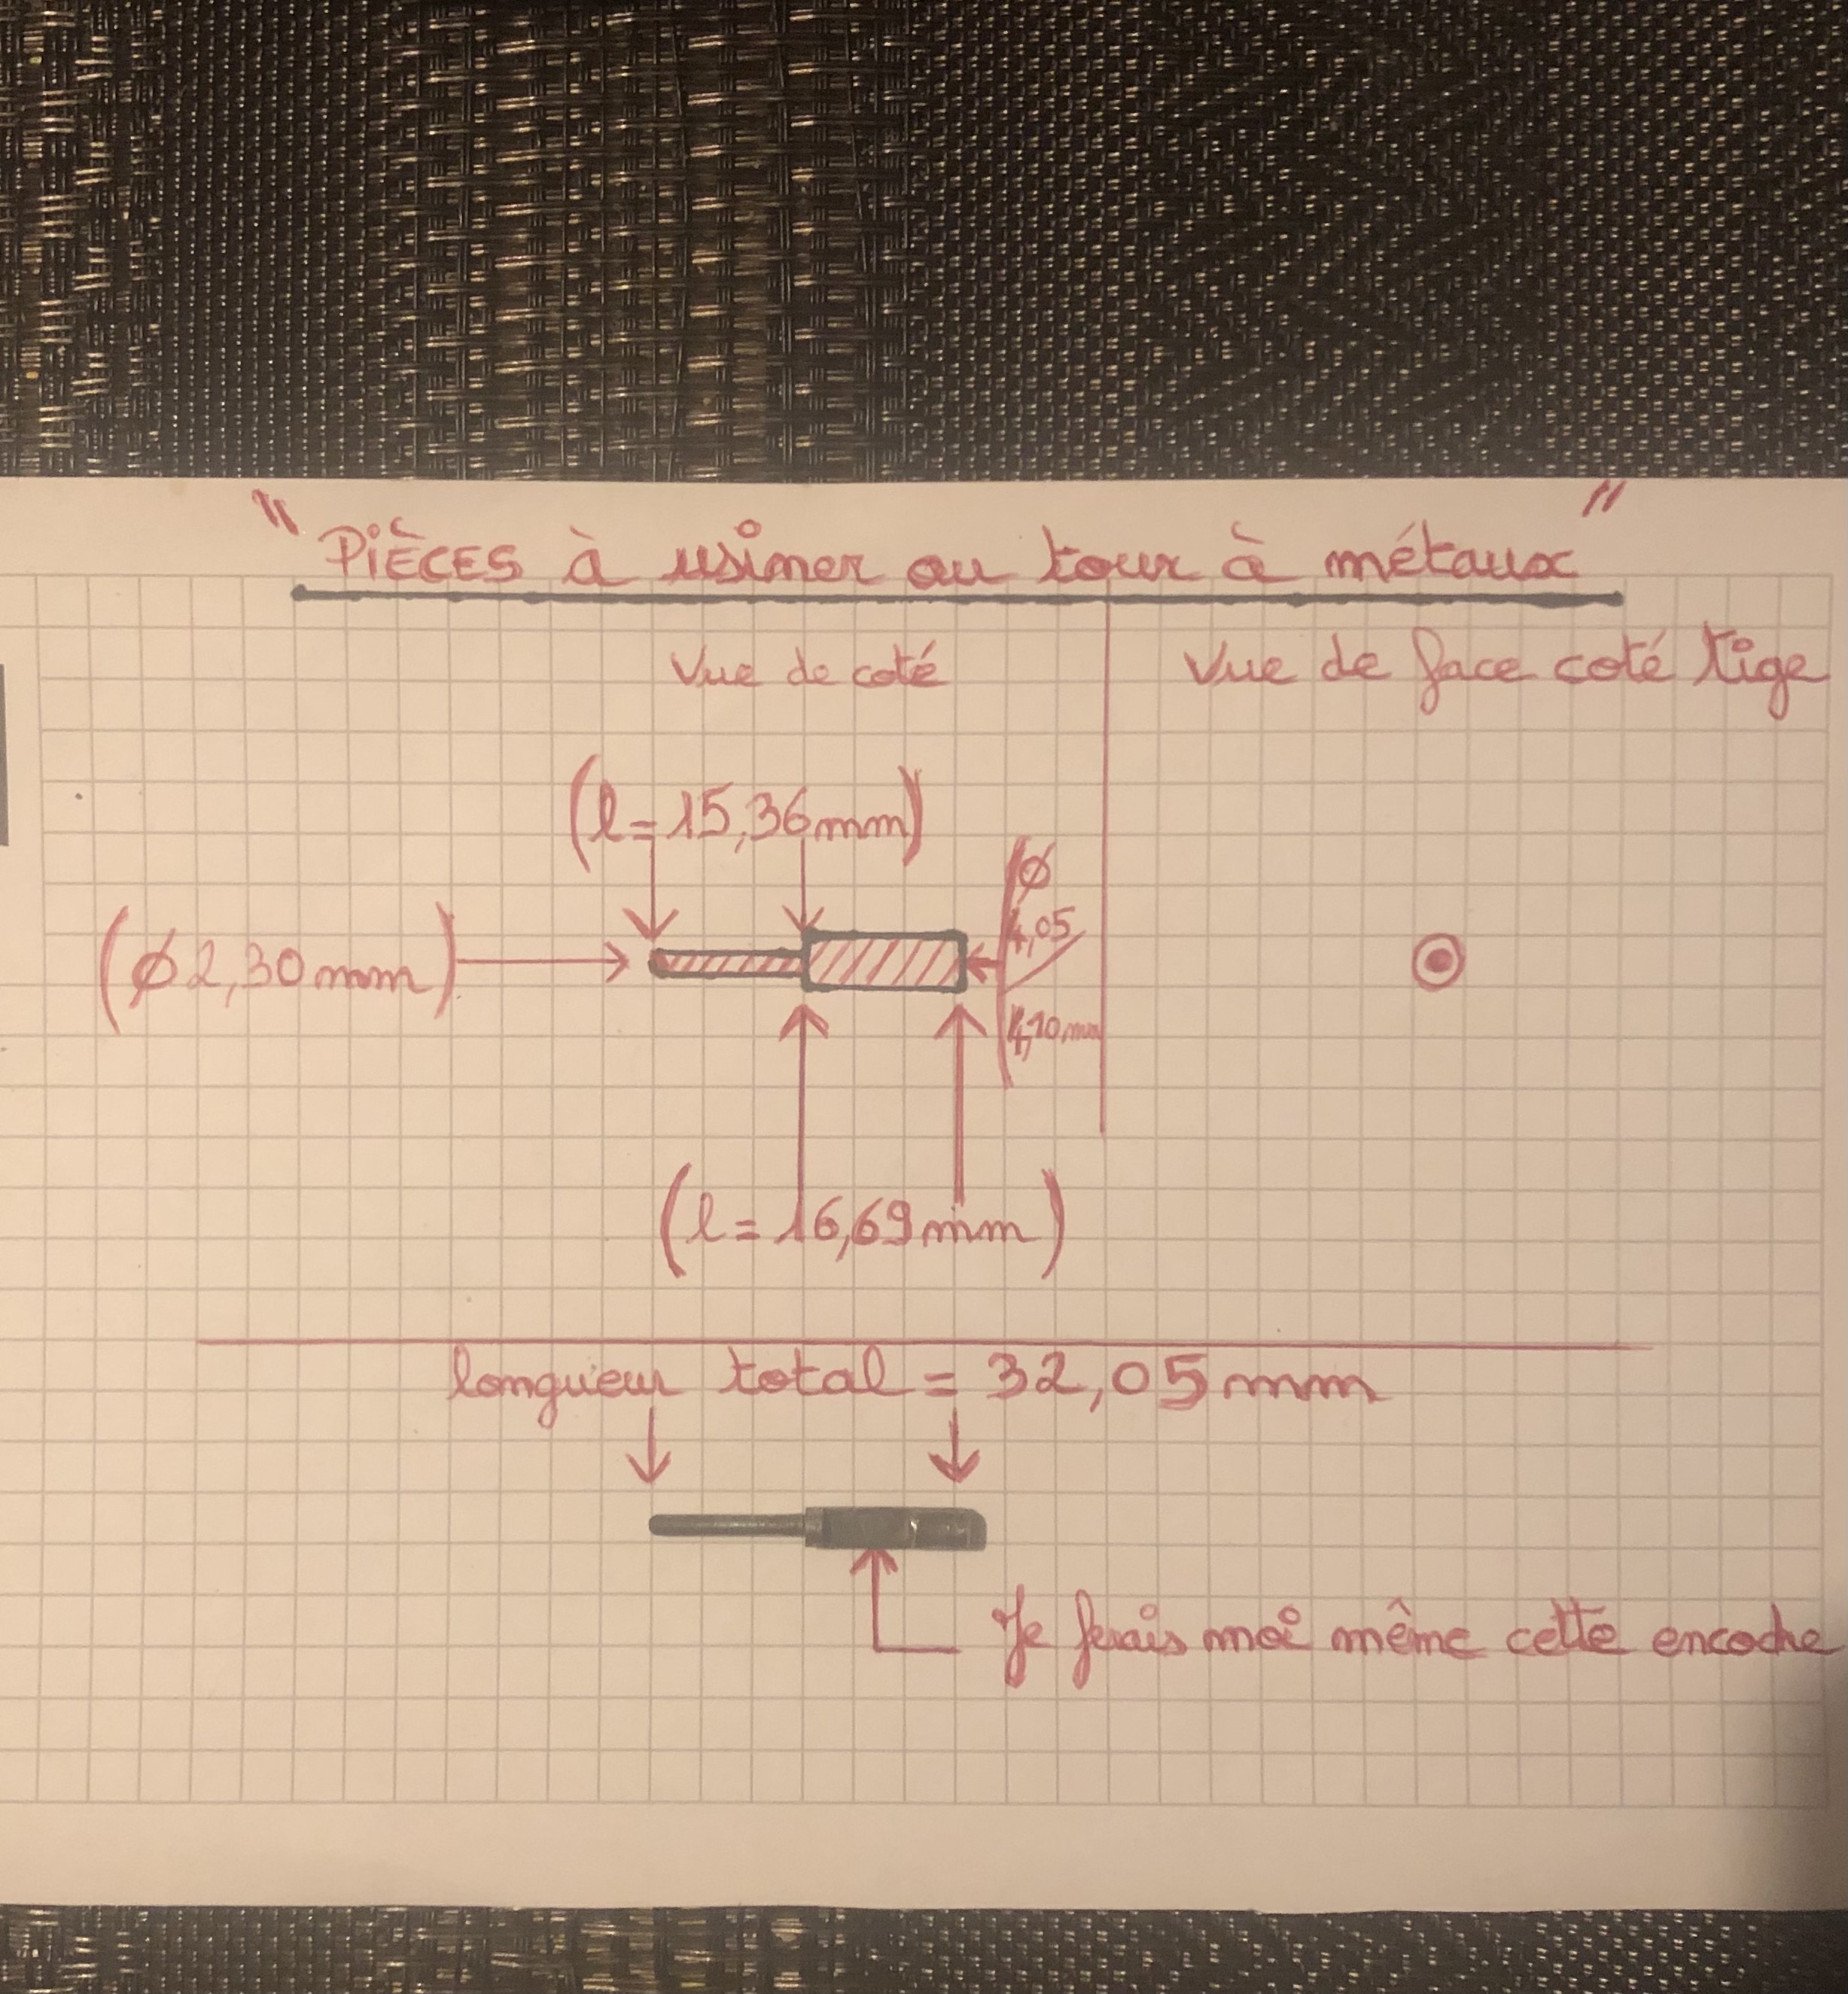 " PIÈCES à usiner au tour à métaux "
Vue de coté
Vue de face coté tige
(l= 15,36mm)
(ϕ2,30mm)
ϕ
4,05
4,10mm
(l= 16,69mm)
longueur total = 32,05mm
Je ferais moi même cette encoche